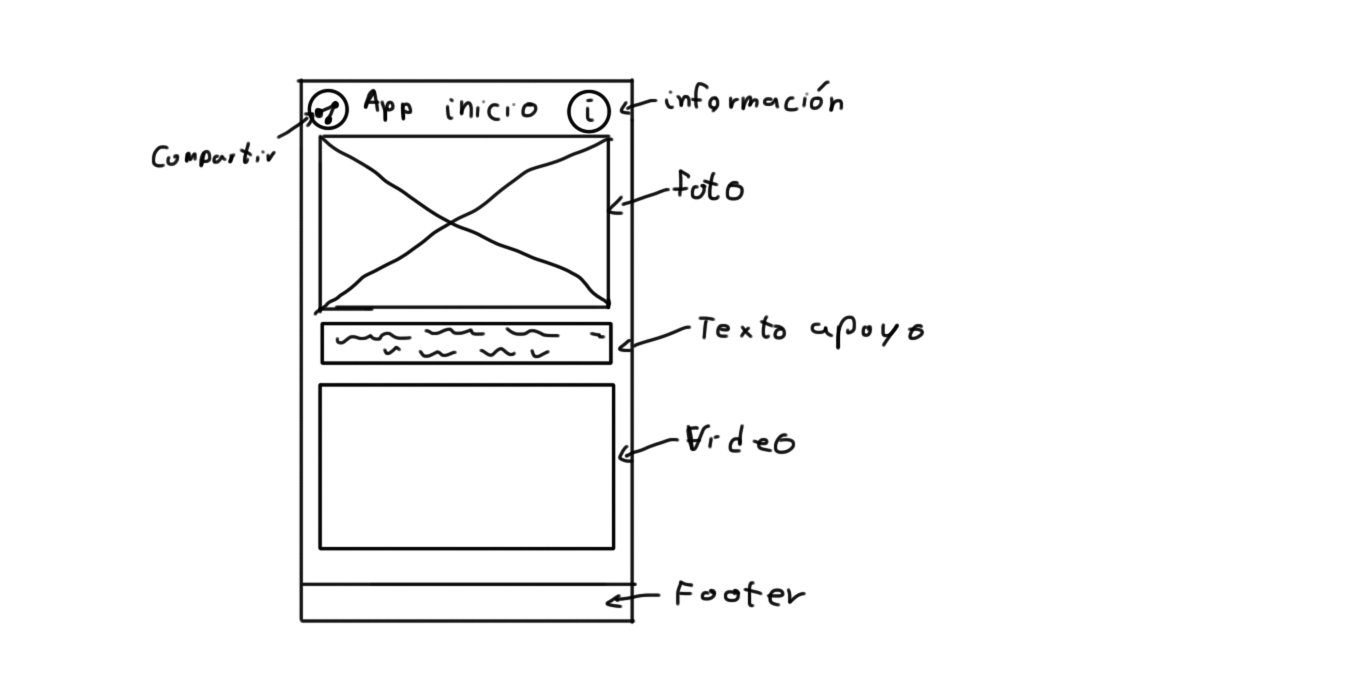 App inicio
i
información
Compartir
foto
Texto apoyo
Video
Footer